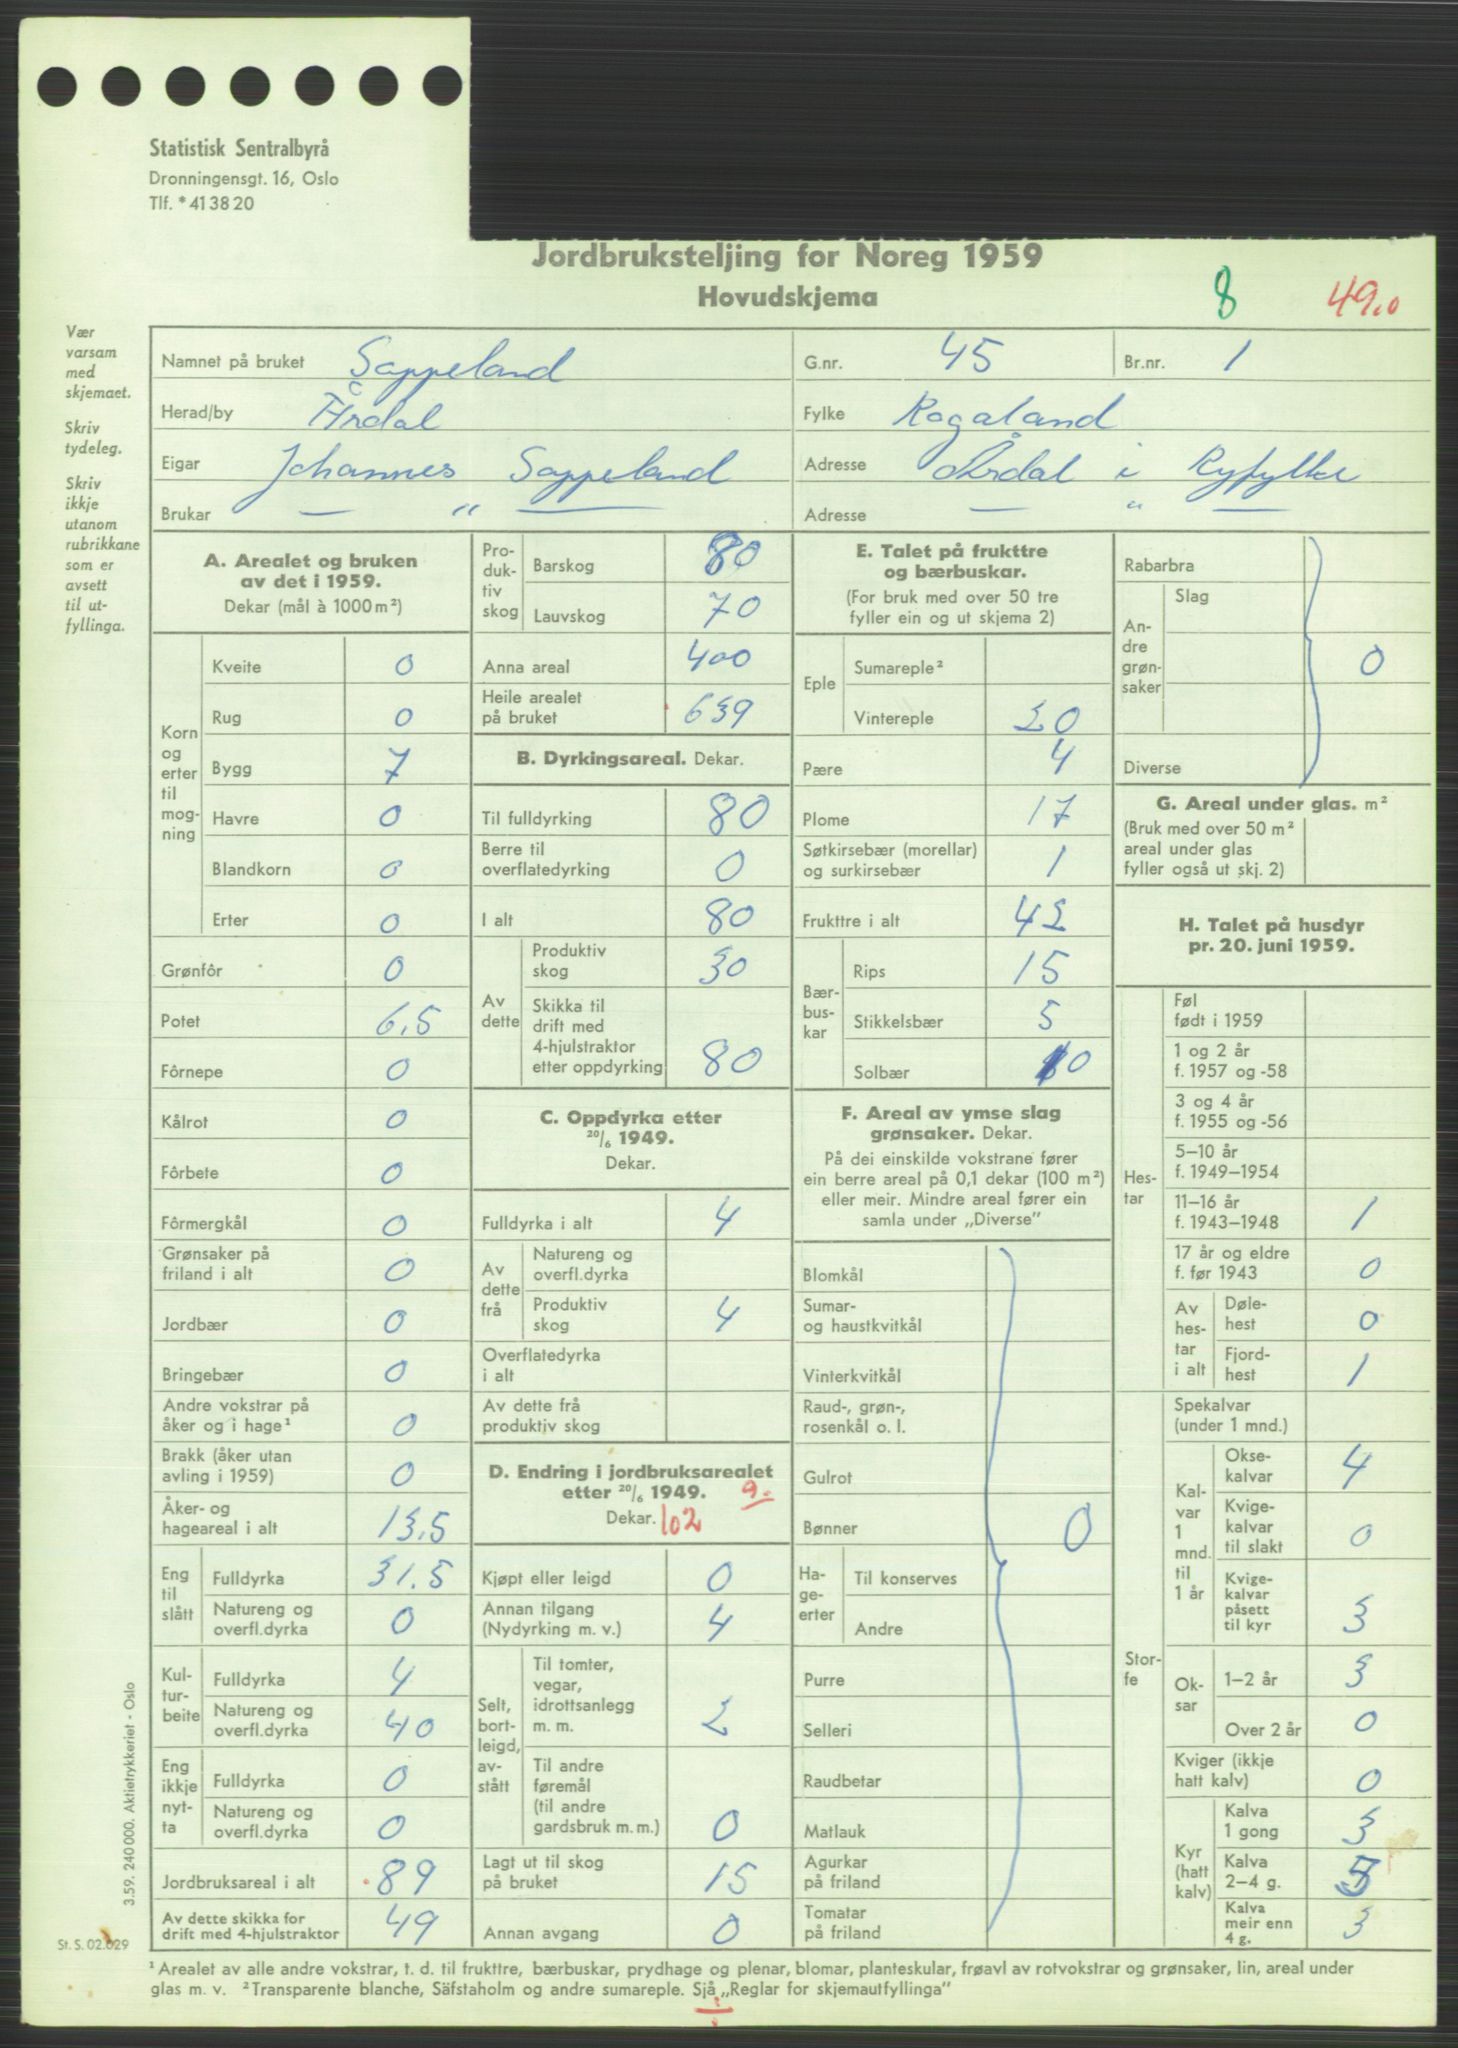 Statistisk Sentralbyrå
Dronningensgt. 16, Oslo
Tlf. * 41 38 20
Jordbruksteljing for Noreg 1959
Hovudskjema
8
49,0
Vær
varsam
med
skjemaet.
Skriv
tydeleg.
Skriv
ikkje
utanom
rubrikkane
som er
avsett
til ut-
fyllinga.
Namnet på bruket Sappeland G.nr. 45 Br.nr. 1
Herad/by Årdal Fylke Rogaland
Eigar Johannes Sappeland Adresse Årdal i Ryfylke
Brukar — „ — Adresse — „ —
A. Arealet og bruken
av det i 1959.
Dekar (mål à 1000 m²)
Korn og erter til mog- ning
Kveite 0
Rug 0
Bygg 7
Havre 0
Blandkorn 0
Erter 0
Grønfôr 0
Potet 6,5
Fôrnepe 0
Kålrot 0
Fôrbete 0
Fôrmergkål 0
Grønsaker på
friland i alt 0
Jordbær 0
Bringebær 0
Andre vokstrar på
åker og i hage¹ 0
Brakk (åker utan
avling i 1959) 0
Åker- og
hageareal i alt 13,5
Eng til slått
Fulldyrka 31.5
Natureng og
overfl.dyrka 0
Kul- tur- beite
Fulldyrka 4
Natureng og
overfl.dyrka 40
Eng ikkje nyt- ta
Fulldyrka 0
Natureng og
overfl.dyrka 0
Jordbruksareal i alt 89
Av dette skikka for
drift med 4-hjulstraktor 49
Pro- duk- tiv skog
Barskog 80
Lauvskog 70
Anna areal 400
Heile arealet
på bruket 639
B. Dyrkingsareal. Dekar.
Til fulldyrking 80
Berre til
overflatedyrking 0
I alt 80
Av dette
Produktiv
skog 30
Skikka til
drift med
4-hjulstraktor
etter oppdyrking 80
C. Oppdyrka etter
20/6 1949.
Dekar.
Fulldyrka i alt 4
Av dette frå
Natureng og
overfl.dyrka
Produktiv
skog 4
Overflatedyrka
i alt
Av dette frå
produktiv skog
D. Endring i jordbruksarealet
etter 20/6 1949. 9.
Dekar. 102
Kjøpt eller leigd 0
Annan tilgang
(Nydyrking m. v.) 4
Selt, bort- leigd, av- stått
Til tomter,
vegar,
idrottsanlegg
m. m. 2
Til andre
føremål
(til andre
gardsbruk m. m.) 0
Lagt ut til skog
på bruket 15
Annan avgang 0
E. Talet på frukttre
og bærbuskar.
(For bruk med over 50 tre
fyller ein og ut skjema 2)
Eple
Sumareple²
Vintereple 20
Pære 4
Plome 17
Søtkirsebær (morellar)
og surkirsebær 1
Frukttre i alt 42
Bær- bus- kar
Rips 15
Stikkelsbær 5
Solbær 10
F. Areal av ymse slag
grønsaker. Dekar.
På dei einskilde vokstrane fører
ein berre areal på 0,1 dekar (100 m²)
eller meir. Mindre areal fører ein
samla under „Diverse”
Blomkål
Sumar-
og haustkvitkål
Vinterkvitkål
Raud-, grøn-,
rosenkål o. l.
Gulrot
Bønner 0
Ha- ge- erter
Til konserves
Andre
Purre
Selleri
Raudbetar
Matlauk
Agurkar
på friland
Tomatar
på friland
Rabarbra
An- dre grøn- saker
Slag
0
Diverse
G. Areal under glas. m²
(Bruk med over 50 m²
areal under glas
fyller også ut skj. 2)
H. Talet på husdyr
pr. 20. juni 1959.
Hes- tar
Føl
født i 1959
1 og 2 år
f. 1957 og -58
3 og 4 år
f. 1955 og -56
5–10 år
f. 1949–1954
11–16 år
f. 1943–1948 1
17 år og eldre
f. før 1943 0
Av hes- tar i alt
Døle-
hest 0
Fjord-
hest 1
Stor- fe
Spekalvar
(under 1 mnd.)
Kal- var 1 mnd. til 1 år
Okse-
kalvar 4
Kvige-
kalvar
til slakt 0
Kvige-
kalvar
påsett
til kyr 3
Ok- sar
1–2 år 3
Over 2 år 0
Kviger (ikkje
hatt kalv) 0
Kyr (hatt kalv)
Kalva
1 gong 3
Kalva
2–4 g. 5
Kalva
meir enn
4 g. 3
3.59. 240 000. Aktietrykkeriet - Oslo
St. S. 02.029
¹ Arealet av alle andre vokstrar, t. d. til frukttre, bærbuskar, prydhage og plenar, blomar, planteskular, frøavl av rotvokstrar og grønsaker, lin, areal under
glas m. v. ² Transparente blanche, Säfstaholm og andre sumareple. Sjå „Reglar for skjemautfyllinga”